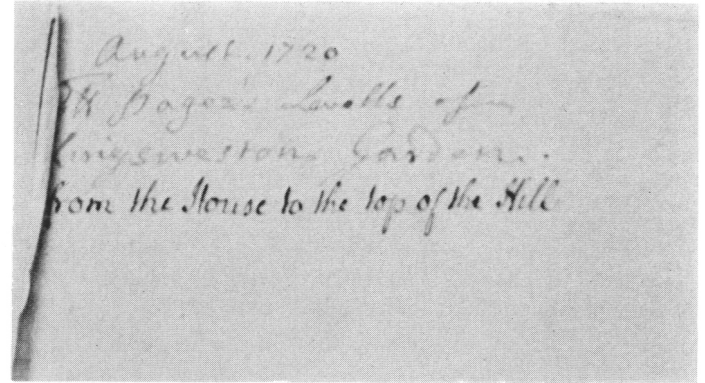 August. 1720
Pages Levells of
Kingsweston Garden.
from the House to the top of the Hill